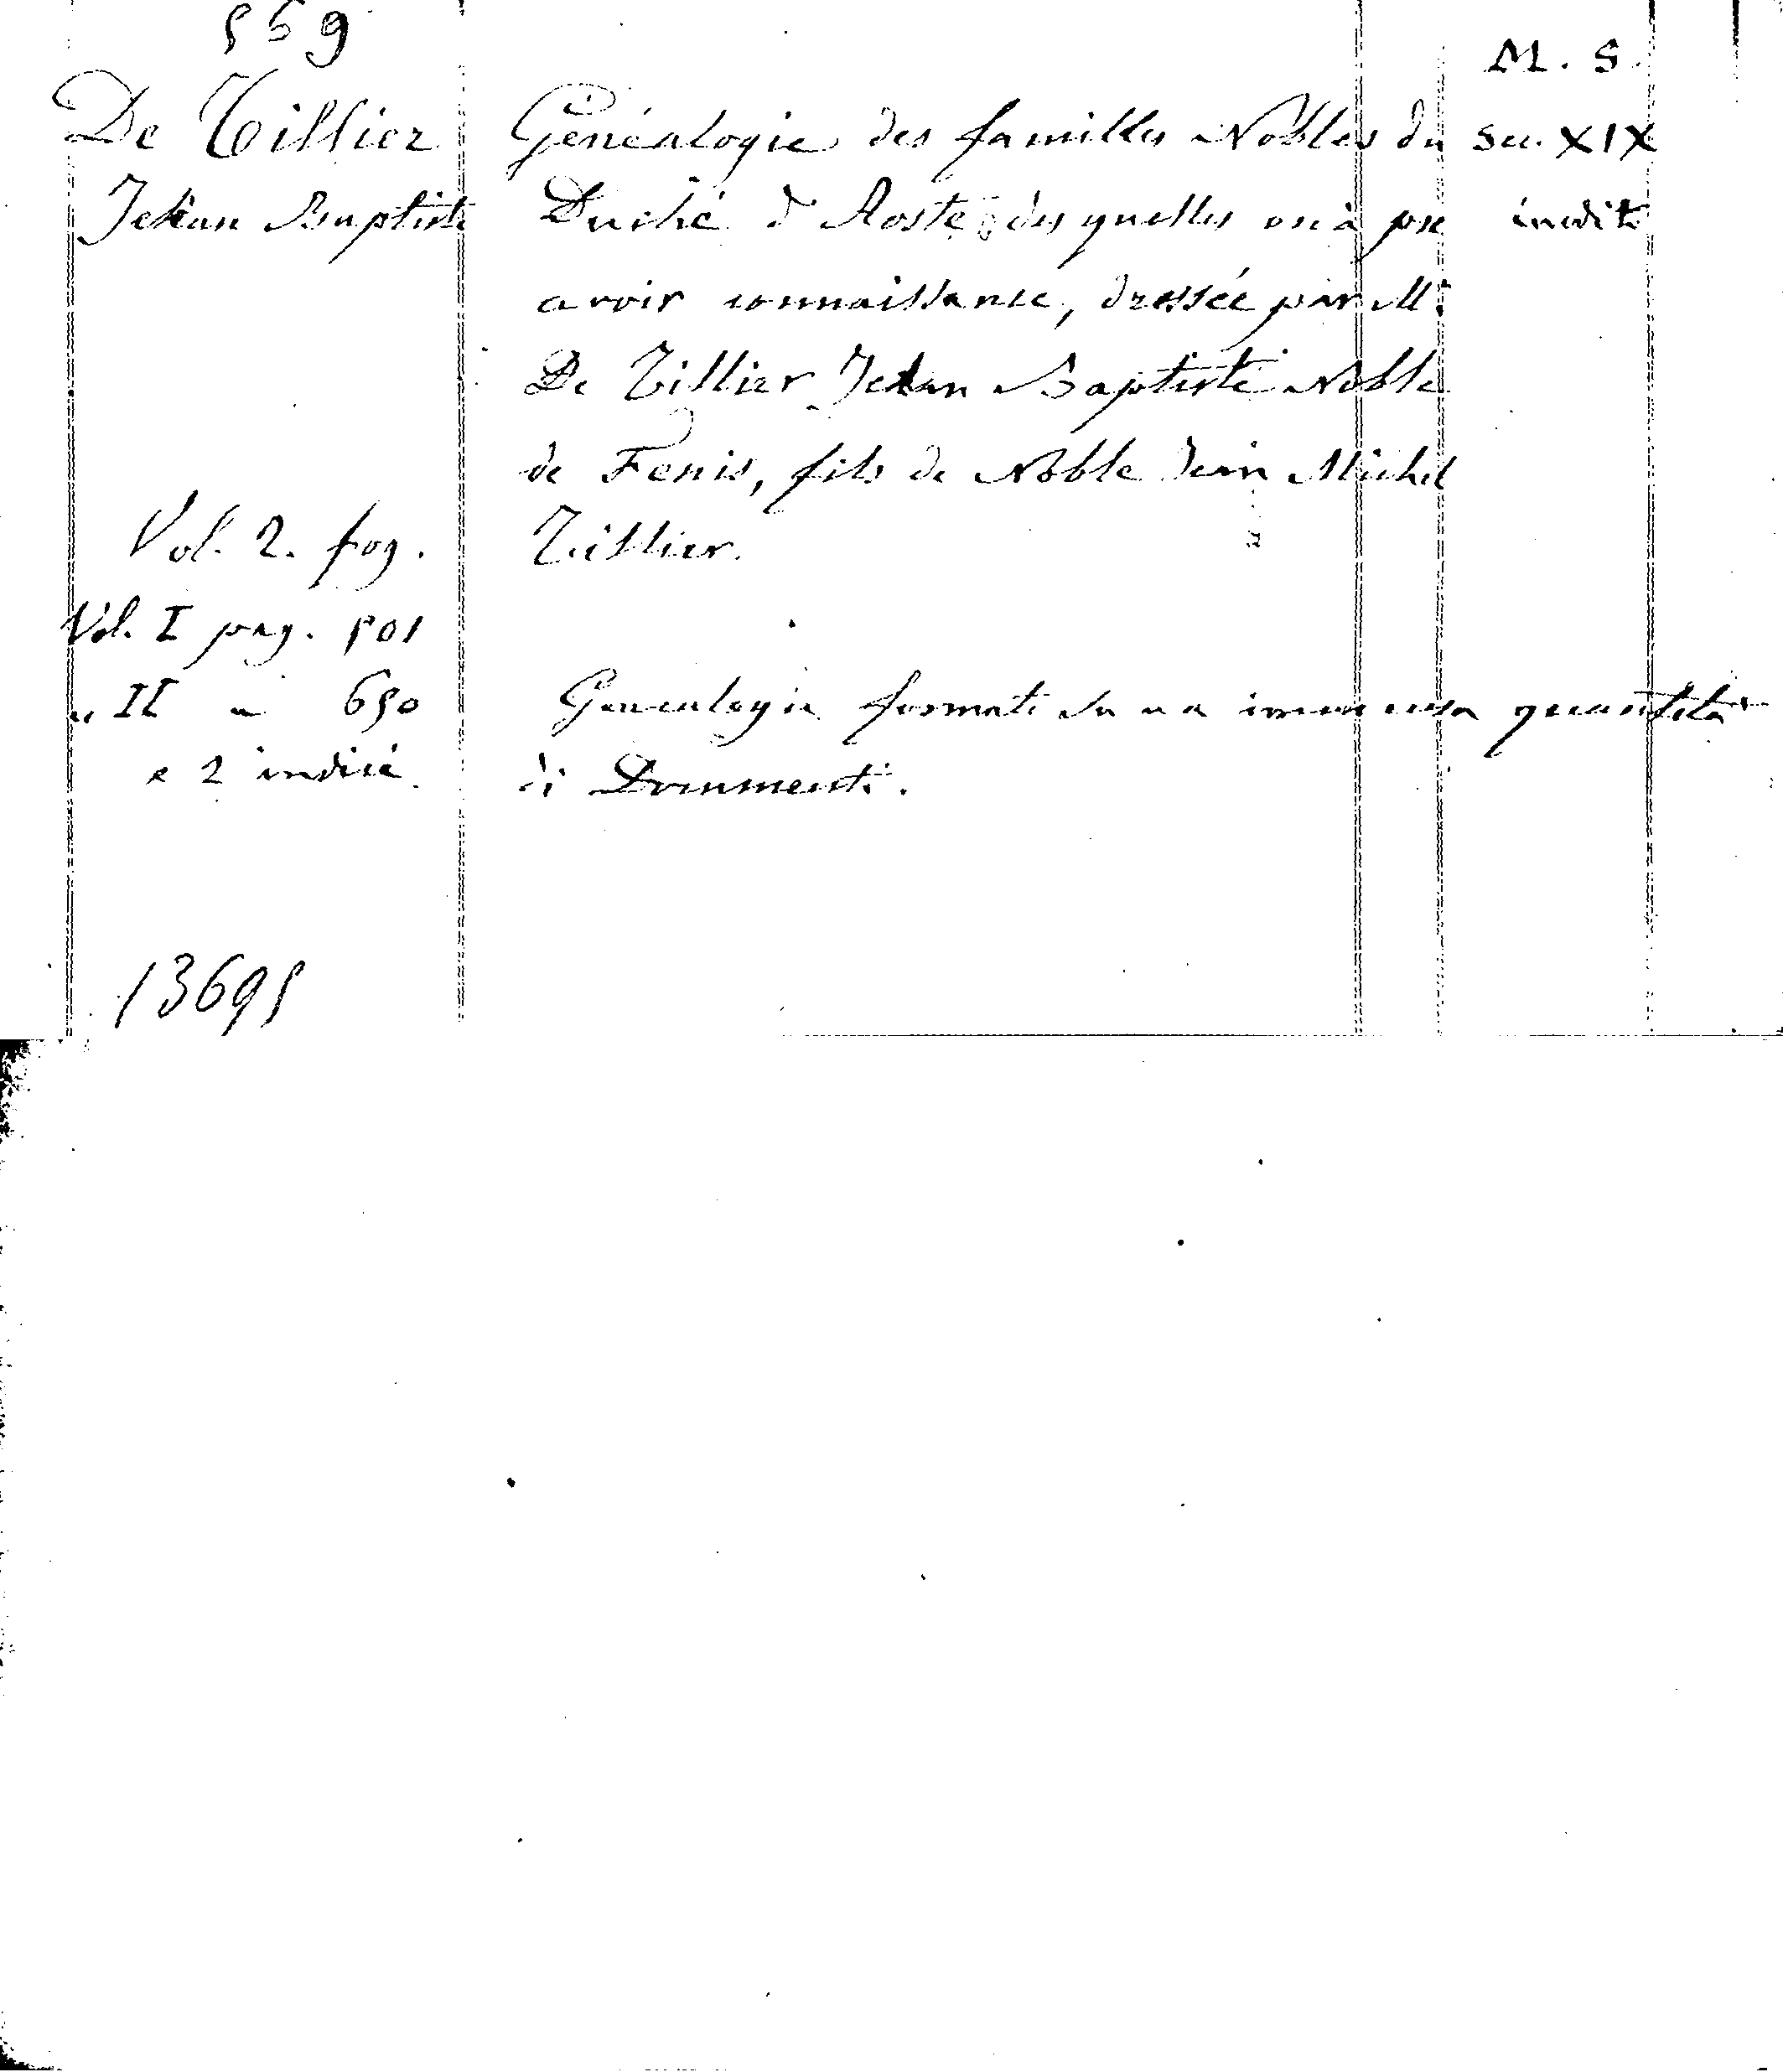 559
M. S.
De Tillier
Jehan Baptiste
Généalogie des familles Nobles du
Duché d'Aoste des quelles on à pu
avoir connaissance, dressée par Mr
De Tillier Jehan Baptiste Noble
de Fenis, fils de Noble Jean Michel
Tillier.
Sec. XIX
inedito
Vol. 2. fog.
Vol. I pag. 501
" II " 650
e 2 indici.
Genealogia formata da una immensa quantità
di Documenti.
13695